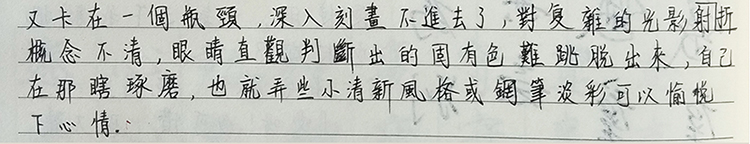 又卡在一個瓶頸,深入刻畫不進去了,對复雜的光影射折
概念不清,眼睛直觀判斷出的固有色難跳脱出來,自己
在那瞎琢磨,也就弄些小清新風格或鋼筆淡彩可以愉悅
下心情.